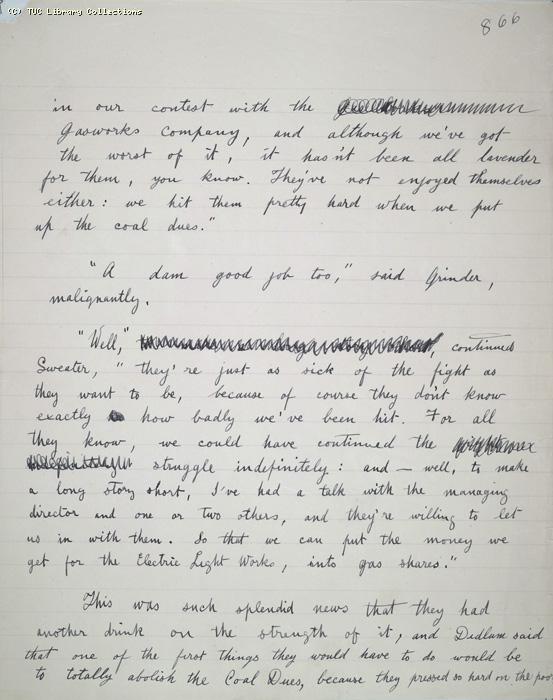 (C) TUC Library Collections
866
in our contest with the
Gasworks Company, and although we've got
the worst of it, it has'nt been all lavender
for them, you know. They've not enjoyed themselves
either: we hit them pretty hard when we put
up the coal dues."
"A dam good job too," said Grinder,
malignantly.
"Well," continued
Sweater, "they're just as sick of the fight as
they want to be, because of course they dont know
exactly how badly we've been hit. For all
they know, we could have continued the
struggle indefinitely: and — well, to make
a long story short, I've had a talk with the managing
director and one or two others, and they're willing to let
us in with them. So that we can put the money we
get for the Electric Light Works, into gas shares."
This was such splendid news that they had
another drink on the strength of it, and Didlum said
that one of the first things they would have to do would be
to totally abolish the Coal Dues, because they pressed so hard on the poor